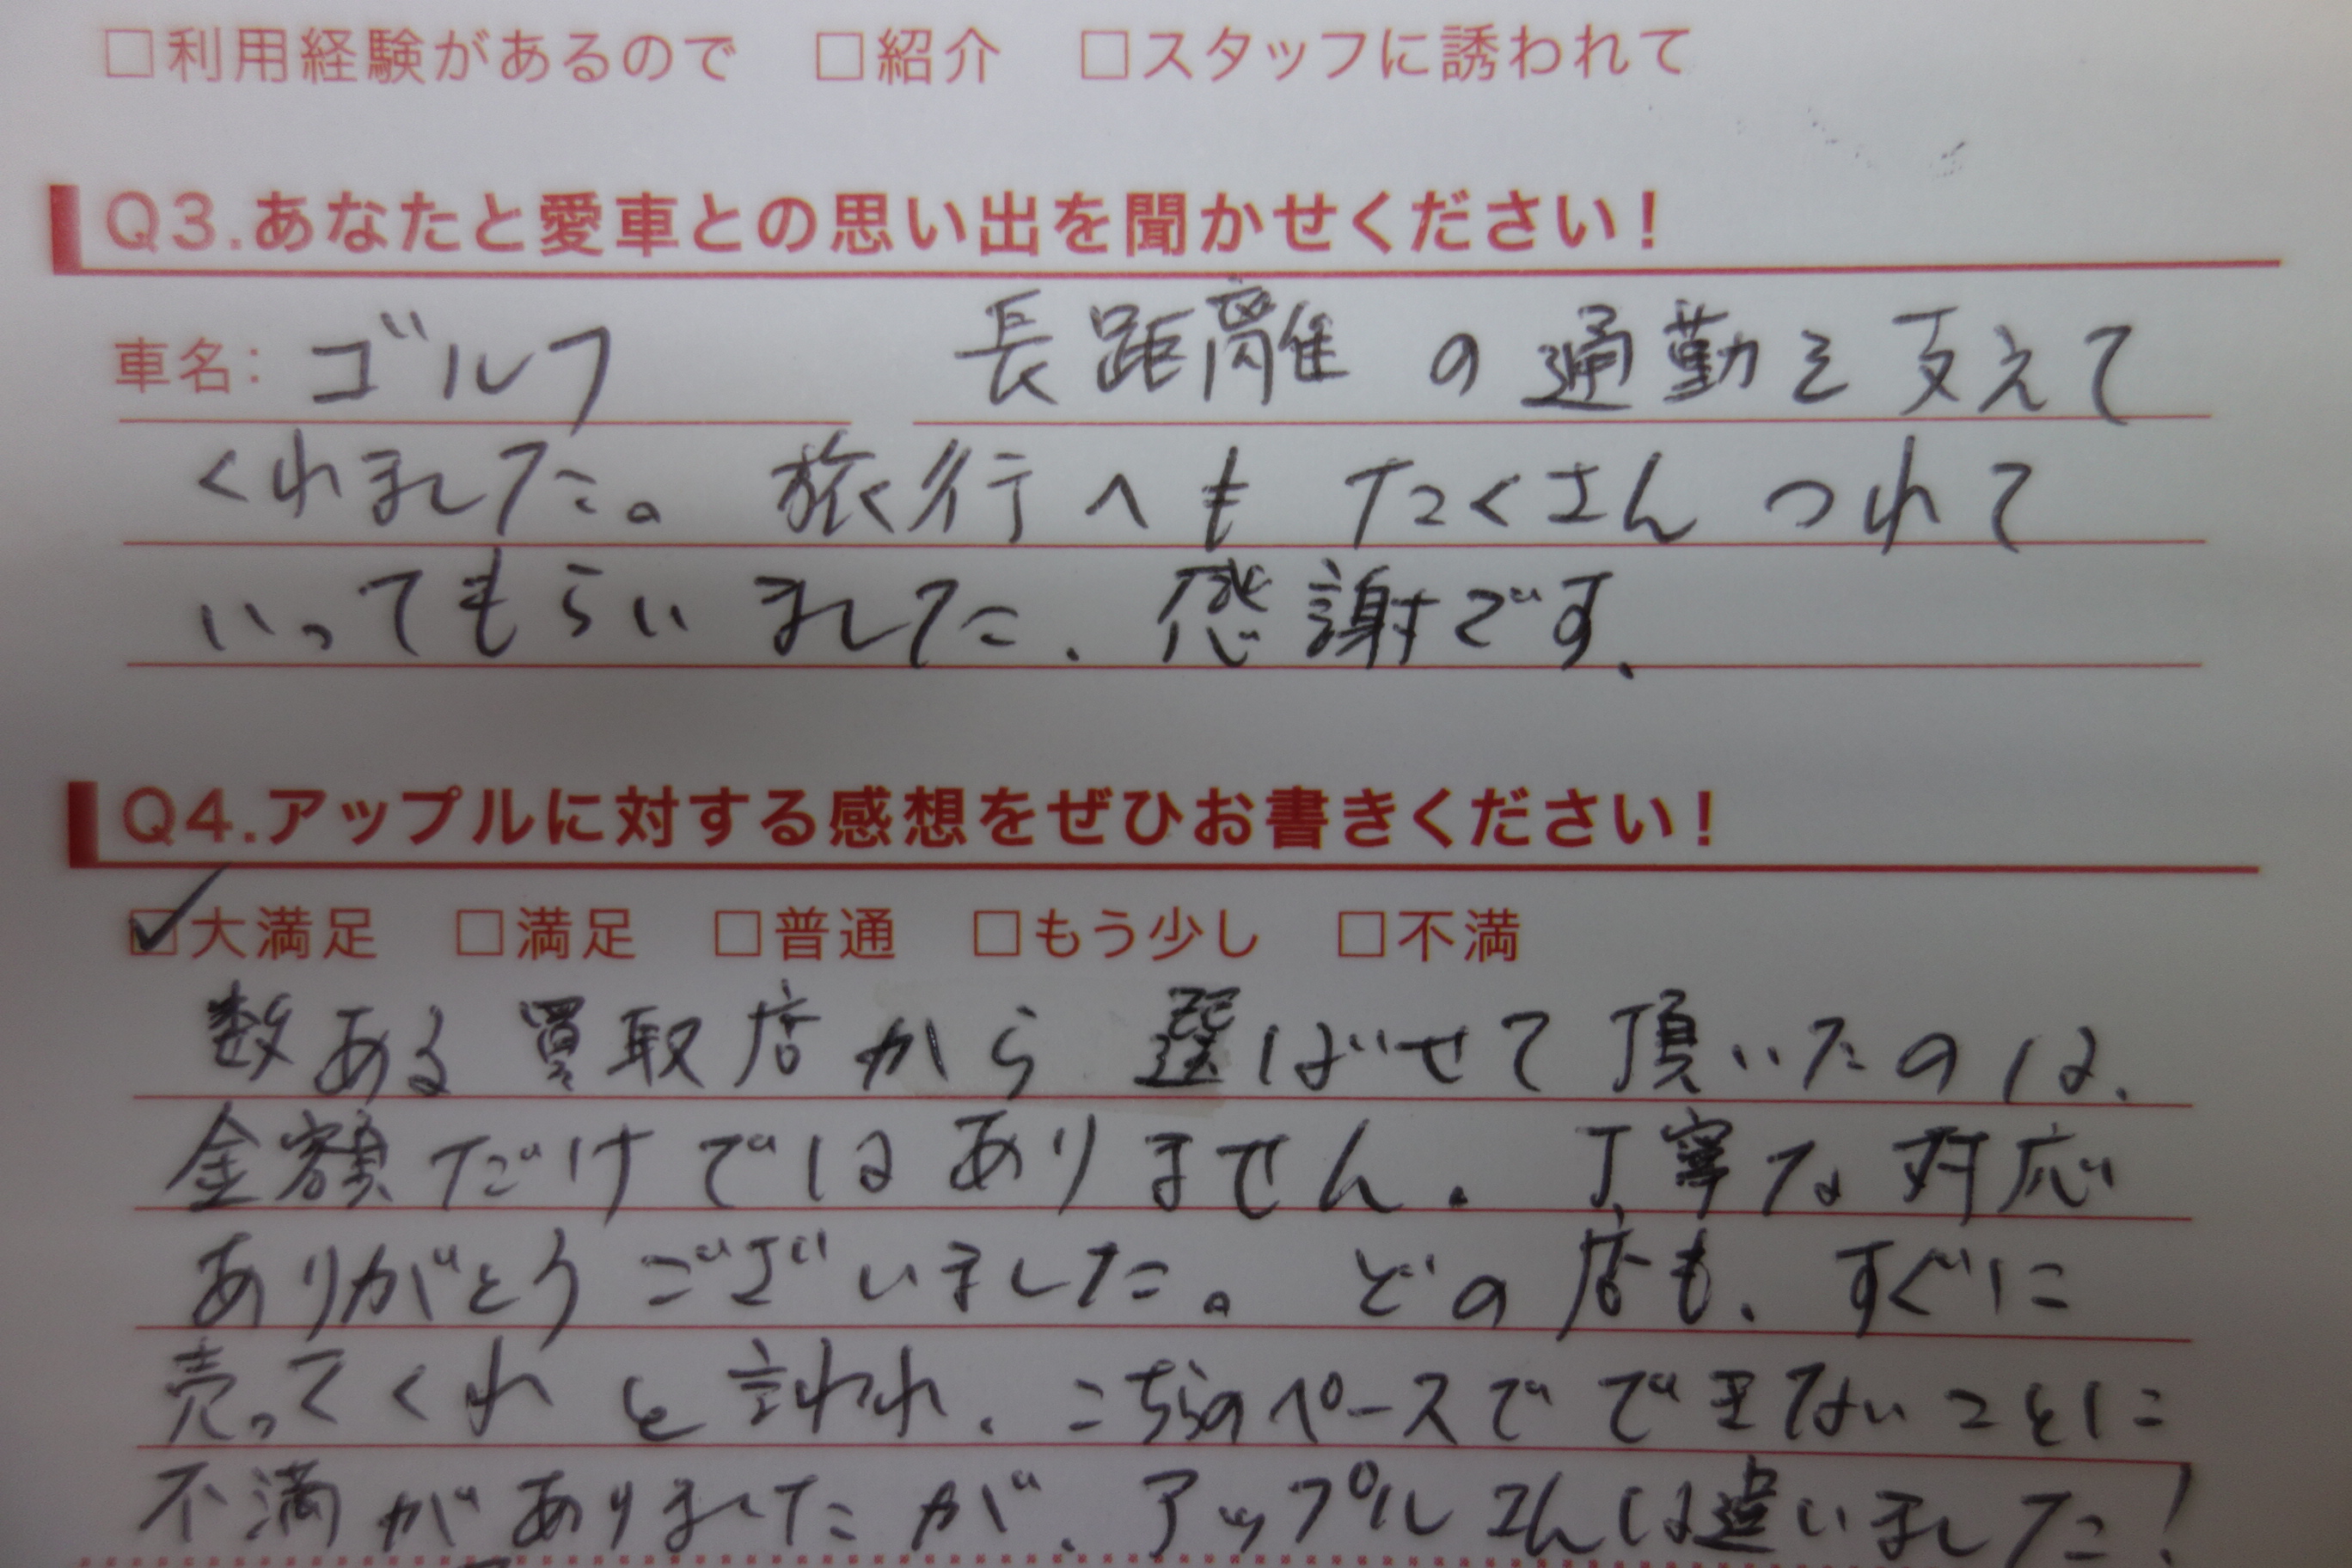 □利用経験があるので □紹介 □スタッフに誘われて
Q3.あなたと愛車との思い出を聞かせください!
車名: ゴルフ 長距離の通勤を支えて
くれました。旅行へもたくさんつれて
いってもらいました.感謝です.
Q4.アップルに対する感想をぜひお書きください!
☑大満足 □満足 □普通 □もう少し □不満
数ある買取店から選ばせて頂いたのは、
金額だけではありません.丁寧な対応
ありがとうございました。どの店も、すぐに
売ってくれと言われ、こちらのペースでできないことに
不満がありましたが、アップルさんは違いました!